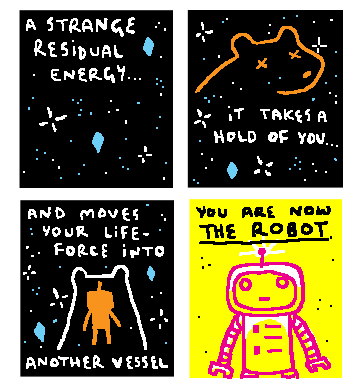 A STRANGE
RESIDUAL
ENERGY...
IT TAKES A
HOLD OF YOU...
AND MOVES
YOUR LIFE-
FORCE INTO
ANOTHER VESSEL
YOU ARE NOW
THE ROBOT.